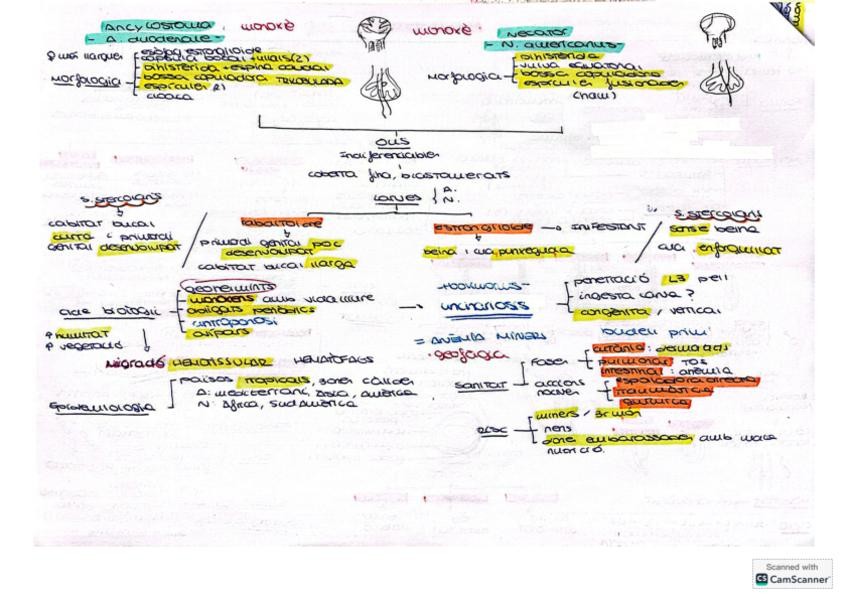 Ancylostoma. monoxè
- A. duodenale -
♀ més llargues
Morfologia
càpsula bucal + ullals (2)
dihisterida + espina caudal
bossa copuladora TRILOBULADA
espícules
cloaca
monoxè
Necator
- N. americanus -
Morfologia
dihisterida
vulva equatorial
bossa copuladora
espícules fusionades
(ham)
OUS
Indiferenciables
coberta fina, blastomerats
Larves { A. N.
S. stercoralis
cabitat bucal
curta i primordi
genital desenvolupat
primordi genital poc
desenvolupat
cabitat bucal llarga
estrongiloide → INFESTANT
beina i cua punxeguda
S. stercoralis
sense beina
cua enforquillat
cicle biològic
↑ humitat
↑ vegetació
Geohelmints
monoxens amb vida lliure
obligats periòdics
antroponosi
ovípars
→
uncinariosis
penetració L3 pell
ingesta carva?
congènita / vertical
Migració HEMATISSULAR HEMATÒFAGS
= ANÈMIA MINERS
· geofagia
Epidemiologia
països tropicals, zones càlides
A: mediterrani, Àsia, Amèrica
N: Àfrica, Sud Amèrica
SANITAT
Fases
cutània: dermatitis
pulmonar: TOS
intestinal: anèmia
accions
nocives
traumàtica
química
RISC
miners / 3r món
nens
dones embarassades amb mala
nutrició.
Scanned with
CS CamScanner